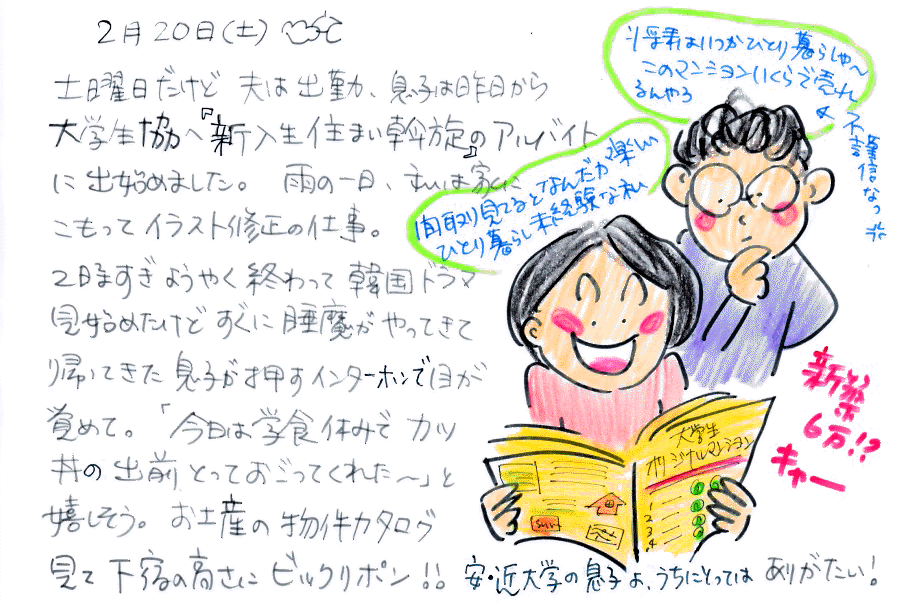 2月20日(土)
土曜日だけど 夫は出勤、息子は昨日から
大学生協へ『新入生住まい斡旋』のアルバイト
に出始めました。 雨の一日、私は家に
こもってイラスト修正の仕事。
2時すぎようやく終わって韓国ドラマ
見始めたけどすぐに睡魔がやってきて
帰ってきた息子が押すインターホンで目が
覚めて。「今日は学食休みで カツ
丼の出前とっておごってくれた〜」と
嬉しそう。お土産の物件カタログ
見て下宿の高さにビックリポン!! 安・近大学の息子よ、うちにとっては ありがたい!
将来はいつかひとり暮らしや〜
このマンションいくらで売れ
るんやろ
間取り見てるとなんだか楽しい
ひとり暮らし未経験な私
新築
6万!?
キャー
大学生
オリジナルマンション
1
2
3
4